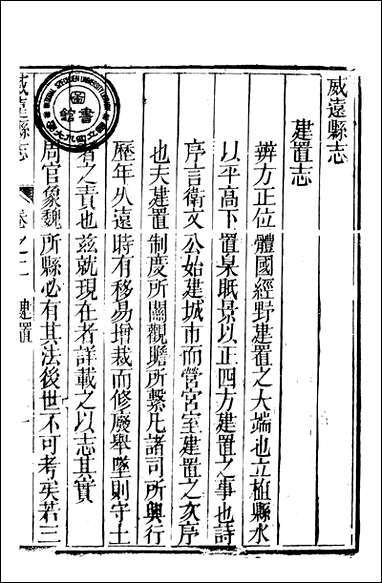 威遠縣志
建置志
辨方正位體國經野建置之大端也立植縣水
以平高下置臬眂景以正四方建置之事也詩
序言衛文公始建城市而營宮室建置之次序
也夫建置制度所關觀瞻所繫凡諸司所興行
歷年久遠時有移易增裁而修廢舉墜則守土
者之責也兹就現在者詳載之以志其實
周官象魏所縣必有其法後世不可考矣若三
威遠縣志
卷之二
建置
一
NATIONAL SZECHUEN UNIVERSITY LIBRARY
國立四川大學
圖書館